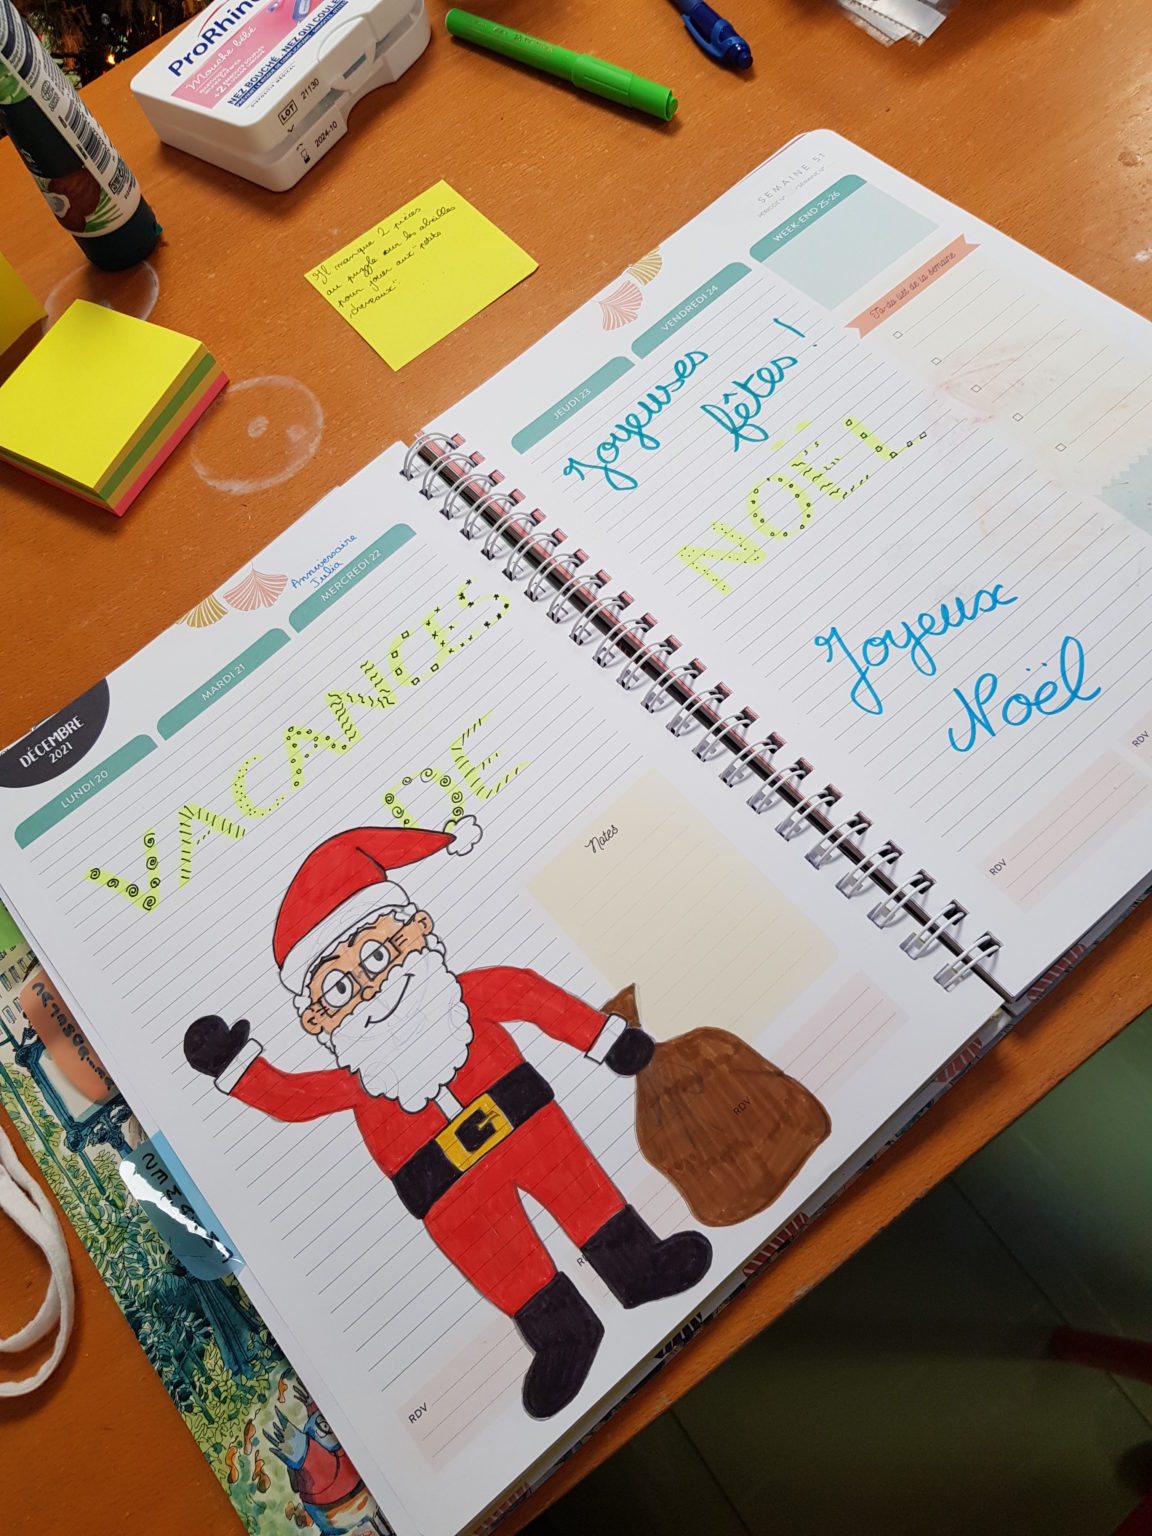 ProRhin
Mouche bébé
NEZ BOUCHÉ, NEZ QUI COULE
LOT 21130
2024-10
Il manque 2 pièces
au puzzle sur les abeilles
pour jouer aux "petits
chevaux"
SEMAINE 51
WEEK-END 25-26
VENDREDI 24
JEUDI 23
To-do list de la semaine
Joyeuses
fêtes !
NOËL
Joyeux
Noël
RDV
RDV
Anniversaire
Julia
MERCREDI 22
MARDI 21
LUNDI 20
DÉCEMBRE
2021
VACANCES
DE
Notes
RDV
RDV